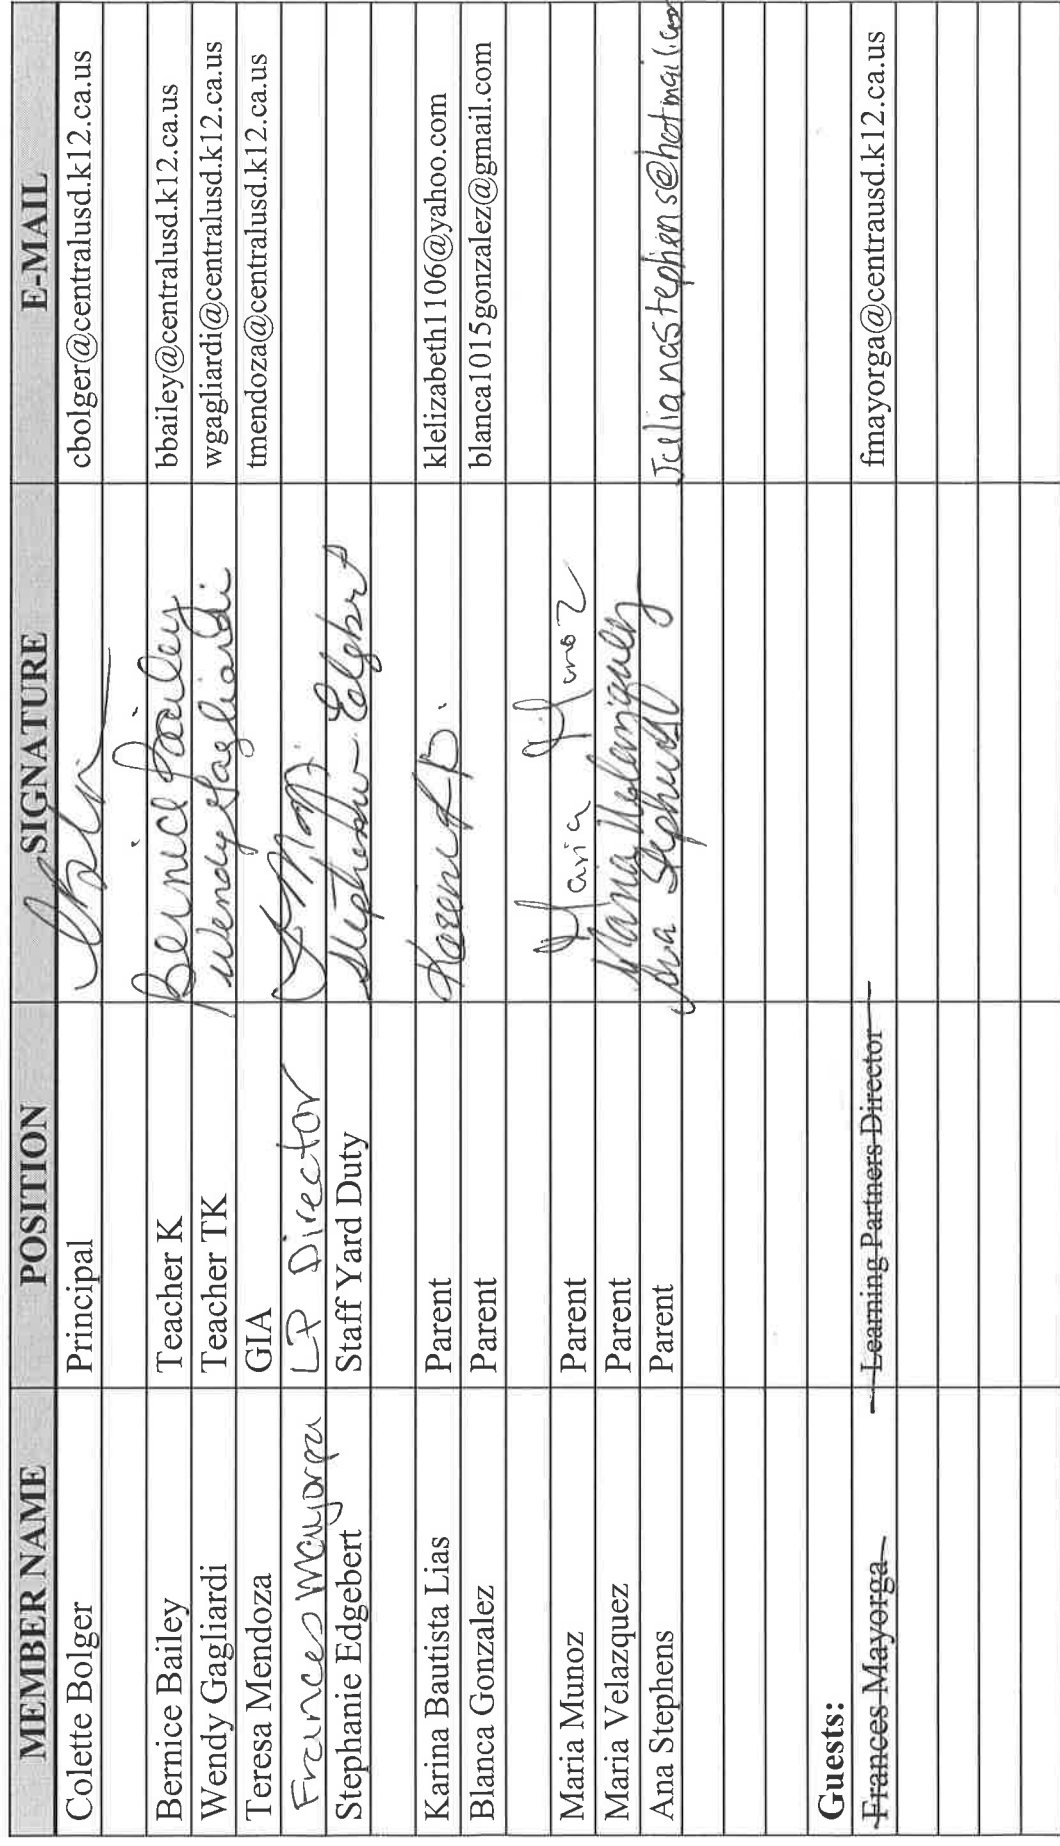 MEMBER NAME POSITION SIGNATURE E-MAIL
Colette Bolger Principal cbolger@centralusd.k12.ca.us
Bernice Bailey Teacher K Bernice Bailey bbailey@centralusd.k12.ca.us
Wendy Gagliardi Teacher TK Wendy Gagliardi wgagliardi@centralusd.k12.ca.us
Teresa Mendoza GIA tmendoza@centralusd.k12.ca.us
Frances Mayorga LP Director
Stephanie Edgebert Staff Yard Duty
Karina Bautista Lias Parent klelizabeth1106@yahoo.com
Blanca Gonzalez Parent blanca1015gonzalez@gmail.com
Maria Munoz Parent Maria Munoz
Maria Velazquez Parent Maria
Ana Stephens Parent Ana Stephens Julianastephens@hotmail.com
Guests:
Frances Mayorga Learning Partners Director fmayorga@centrausd.k12.ca.us